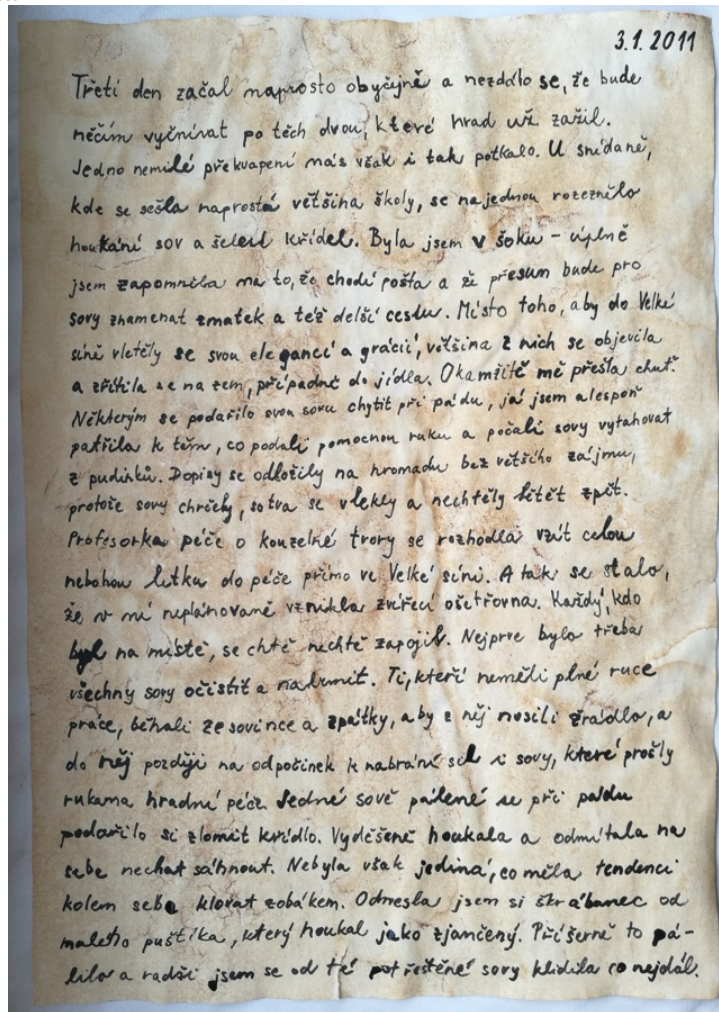 3.1.2011
Třetí den začal naprosto obyčejně a nezdálo se, že bude
něčím vyčnívat po těch dvou, které hrad už zažil.
Jedno nemilé překvapení nás však i tak potkalo. U snídaně,
kde se sešla naprostá většina školy, se najednou rozeznělo
houkání sov a šelest křídel. Byla jsem v šoku - úplně
jsem zapomněla na to, že chodí pošta a že přesun bude pro
sovy znamenat zmatek a též delší cestu. Místo toho, aby do Velké
síně vletěly se svou elegancí a grácií, většina z nich se objevila
a zřítila se na zem, případně do jídla. Okamžitě mě přešla chuť.
Některým se podařilo svou sovu chytit při pádu, já jsem alespoň
patřila k těm, co podali pomocnou ruku a počali sovy vytahovat
z pudinků. Dopisy se odložily na hromadu bez většího zájmu,
protože sovy chrčely, sotva se vlekly a nechtěly letět zpět.
Profesorka péče o kouzelné tvory se rozhodla vzít celou
nebohou letku do péče přímo ve Velké síni. A tak se stalo,
že v ní neplánovaně vznikla zvířecí ošetřovna. Každý, kdo
byl na místě, se chtě nechtě zapojil. Nejprve bylo třeba
všechny sovy očistit a nakrmit. Ti, kteří neměli plné ruce
práce, běhali ze sovince a zpátky, aby z něj nosili žrádlo, a
do něj později na odpočinek k nabrání sil i sovy, které prošly
rukama hradní péče. Jedné sově pálené se při pádu
podařilo si zlomit křídlo. Vyděšeně houkala a odmítala na
sebe nechat sáhnout. Nebyla však jediná, co měla tendenci
kolem sebe klovat zobákem. Odnesla jsem si škrábanec od
malého puštíka, který houkal jako zjančený. Příšerně to pá-
lilo a radši jsem se od té potřeštěné sovy klidila co nejdál.